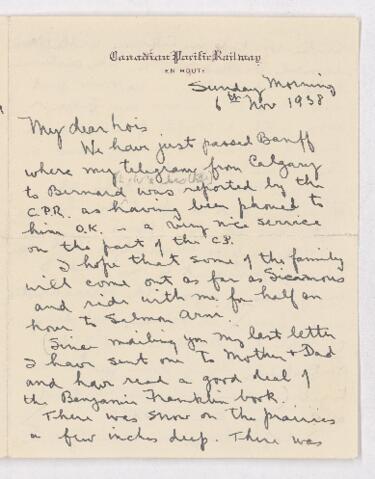 Canadian Pacific Railway
EN ROUTE
Sunday Morning
6th Nov 1938
My dear Lois
We have just passed Banff
where my telegram from Calgary
to Bernard was reported by the
C.P.R. as having been phoned to
him O.K. - a very nice service
on the part of the C.P.
I hope that some of the family
will come out as far as Sicamous
and ride with me for half an
hour to Salmon Arm.
Since mailing you my last letter
I have sent one to Mother + Dad
and have read a good deal of
the Benjamin Franklin book.
There was snow on the prairies
a few inches deep. There was